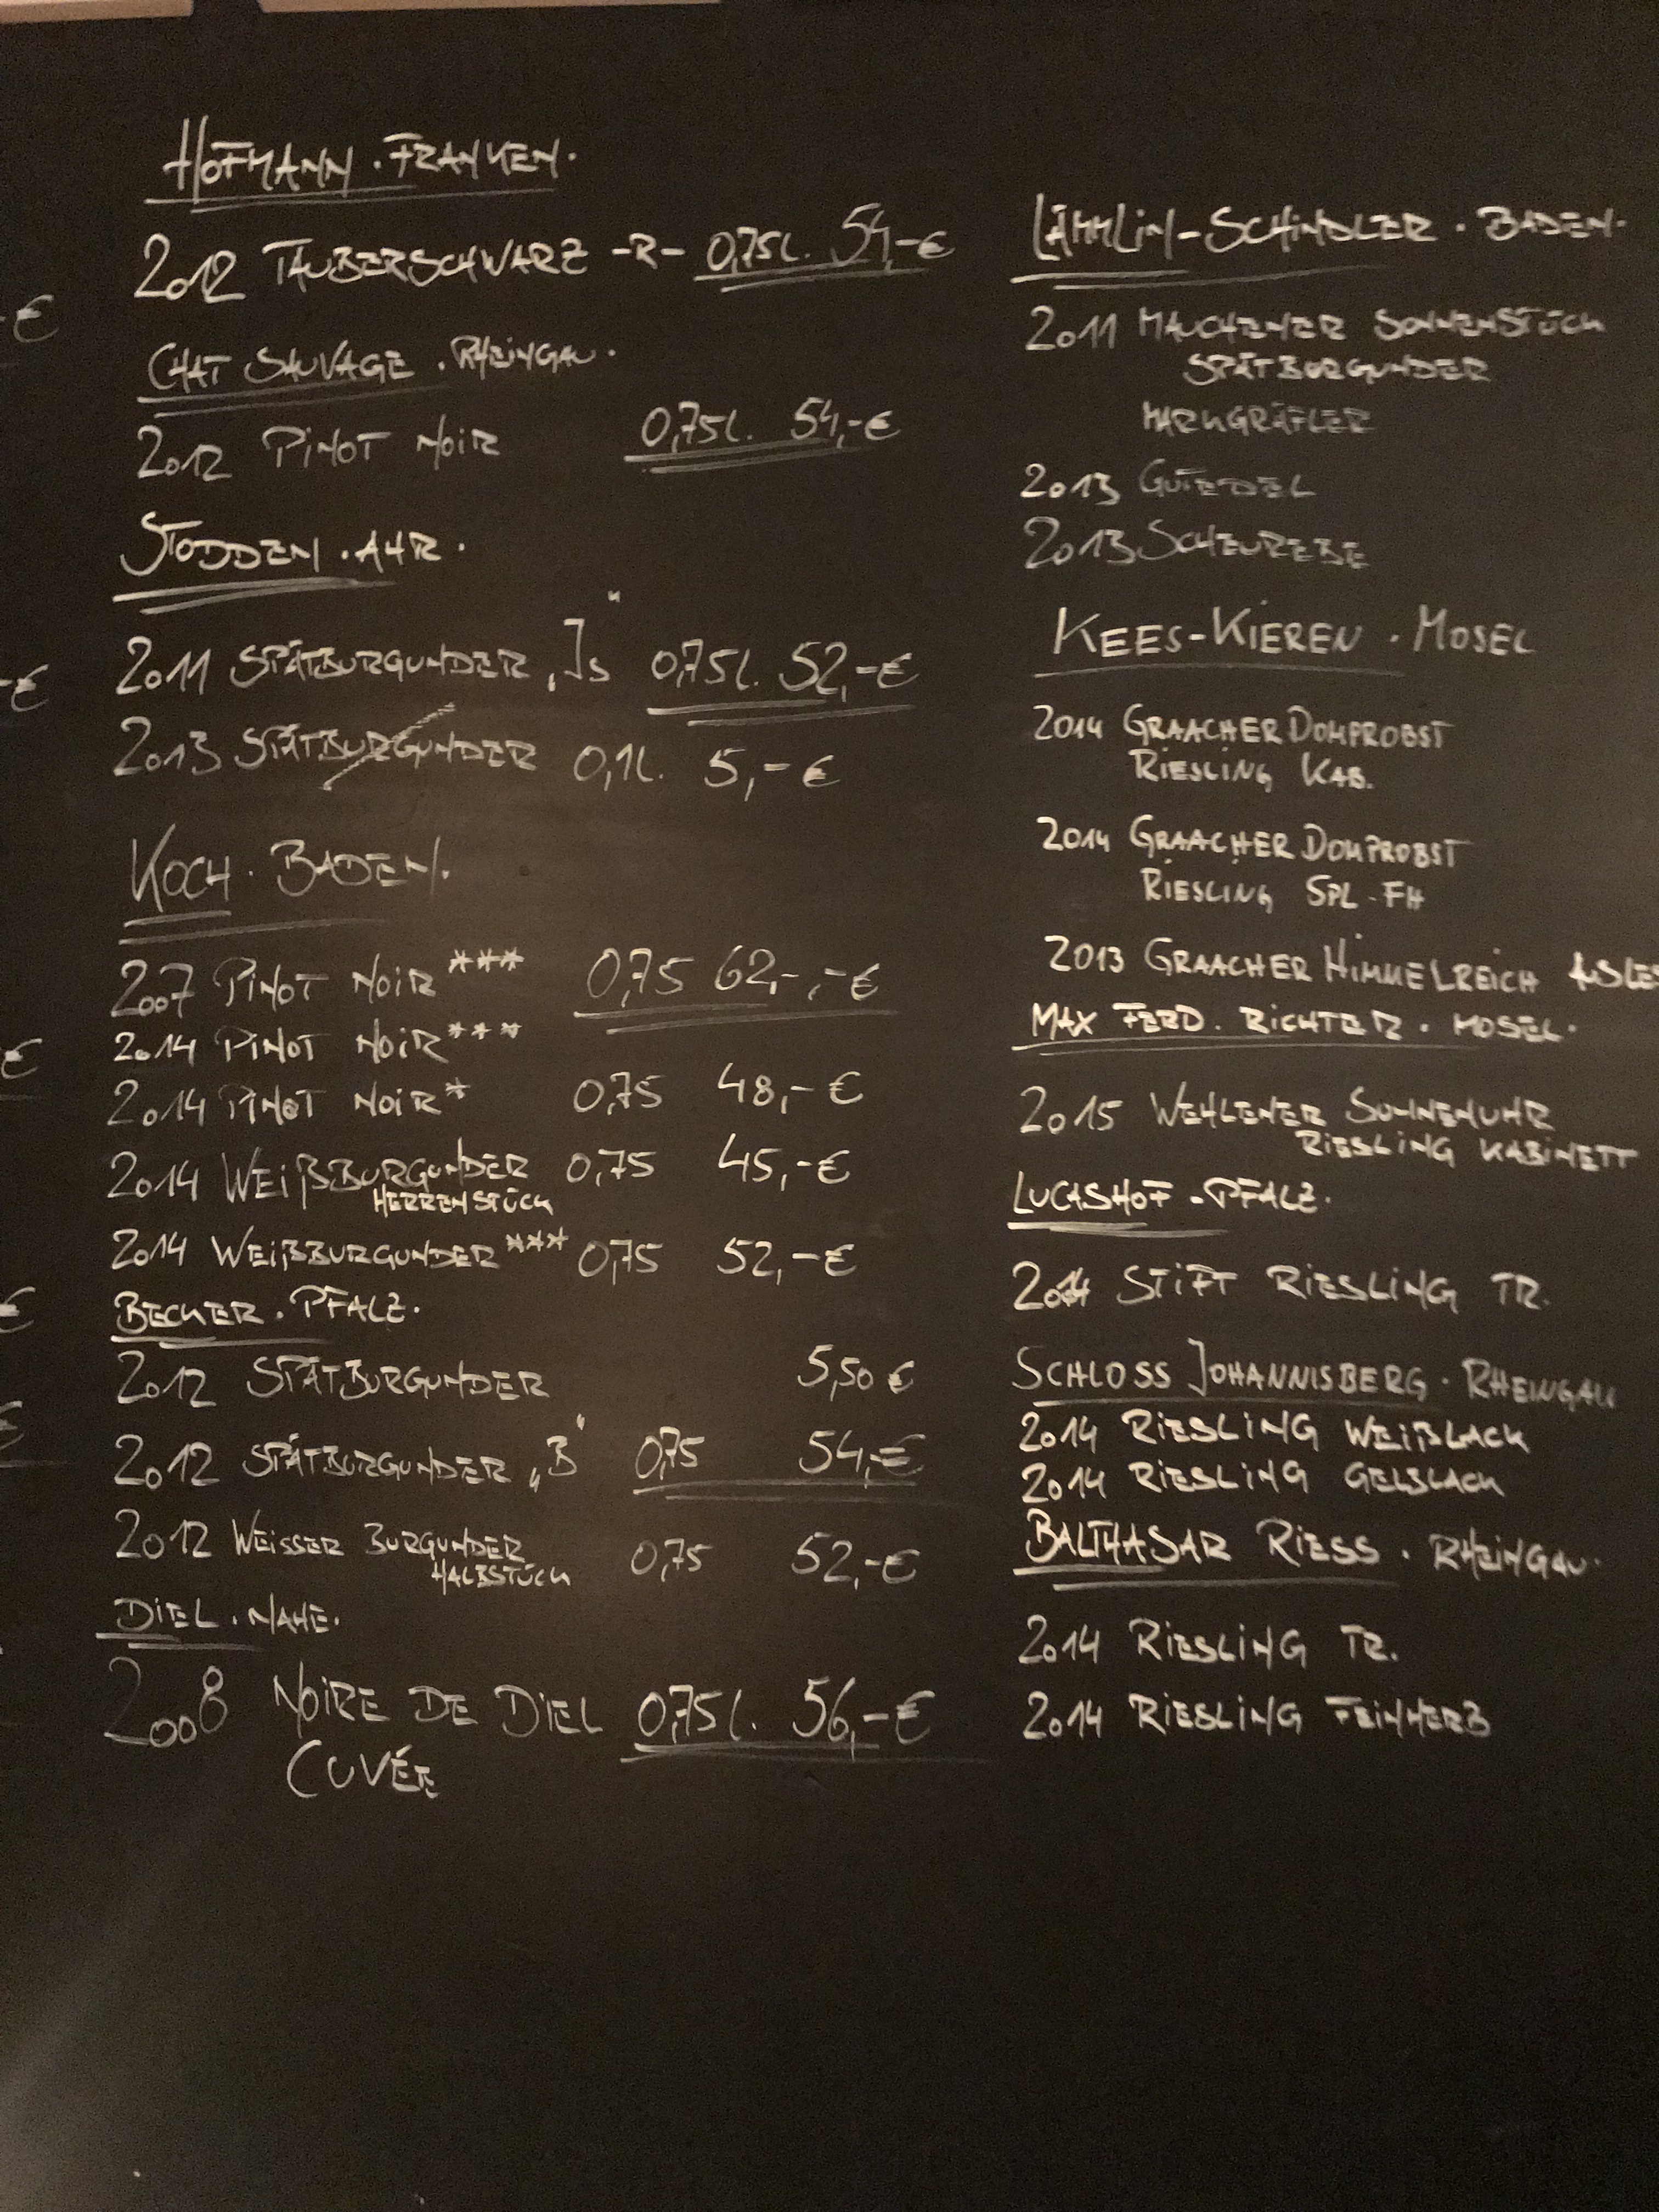 HOFMANN · FRANKEN ·
2012 TAUBERSCHWARZ -R- 0,75l. 54,-€
CHAT SAUVAGE · RHEINGAU ·
2012 PINOT NOIR 0,75l. 54,-€
STODDEN · AHR ·
2011 SPÄTBURGUNDER „Js“ 0,75l. 52,-€
2013 SPÄTBURGUNDER 0,1l. 5,-€
KOCH · BADEN ·
2007 PINOT NOIR *** 0,75 62,-,-€
2014 PINOT NOIR ***
2014 PINOT NOIR * 0,75 48,-€
2014 WEIßBURGUNDER 0,75 45,-€
HERRENSTÜCK
2014 WEIßBURGUNDER *** 0,75 52,-€
BECKER · PFALZ ·
2012 SPÄTBURGUNDER 5,50 €
2012 SPÄTBURGUNDER „B“ 0,75 54,-€
2012 WEISSER BURGUNDER 0,75 52,-€
HALBSTÜCK
DIEL · NAHE ·
2008 NOIRE DE DIEL 0,75l. 56,-€
CUVÉE
LÄMMLIN-SCHINDLER · BADEN ·
2011 MAUCHENER SONNENSTÜCK
SPÄTBURGUNDER
MARKGRÄFLER
2013 GUTEDEL
2013 SCHEUREBE
KEES-KIEREN · MOSEL
2014 GRAACHER DOMPROBST
RIESLING KAB.
2014 GRAACHER DOMPROBST
RIESLING SPL-FH
2013 GRAACHER HIMMELREICH AUSLES
MAX FERD. RICHTER · MOSEL ·
2015 WEHLENER SONNENUHR
RIESLING KABINETT
LUCASHOF - PFALZ ·
2014 STIFT RIESLING TR.
SCHLOSS JOHANNISBERG · RHEINGAU
2014 RIESLING WEIßLACK
2014 RIESLING GELBLACK
BALTHASAR RIESS · RHEINGAU ·
2014 RIESLING TR.
2014 RIESLING FEINHERB